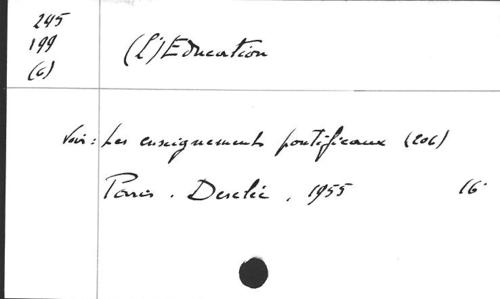 245
199
(6)
(L')Education
Voir : Les enseignements pontificaux (206)
Paris . Desclée . 1955 16°